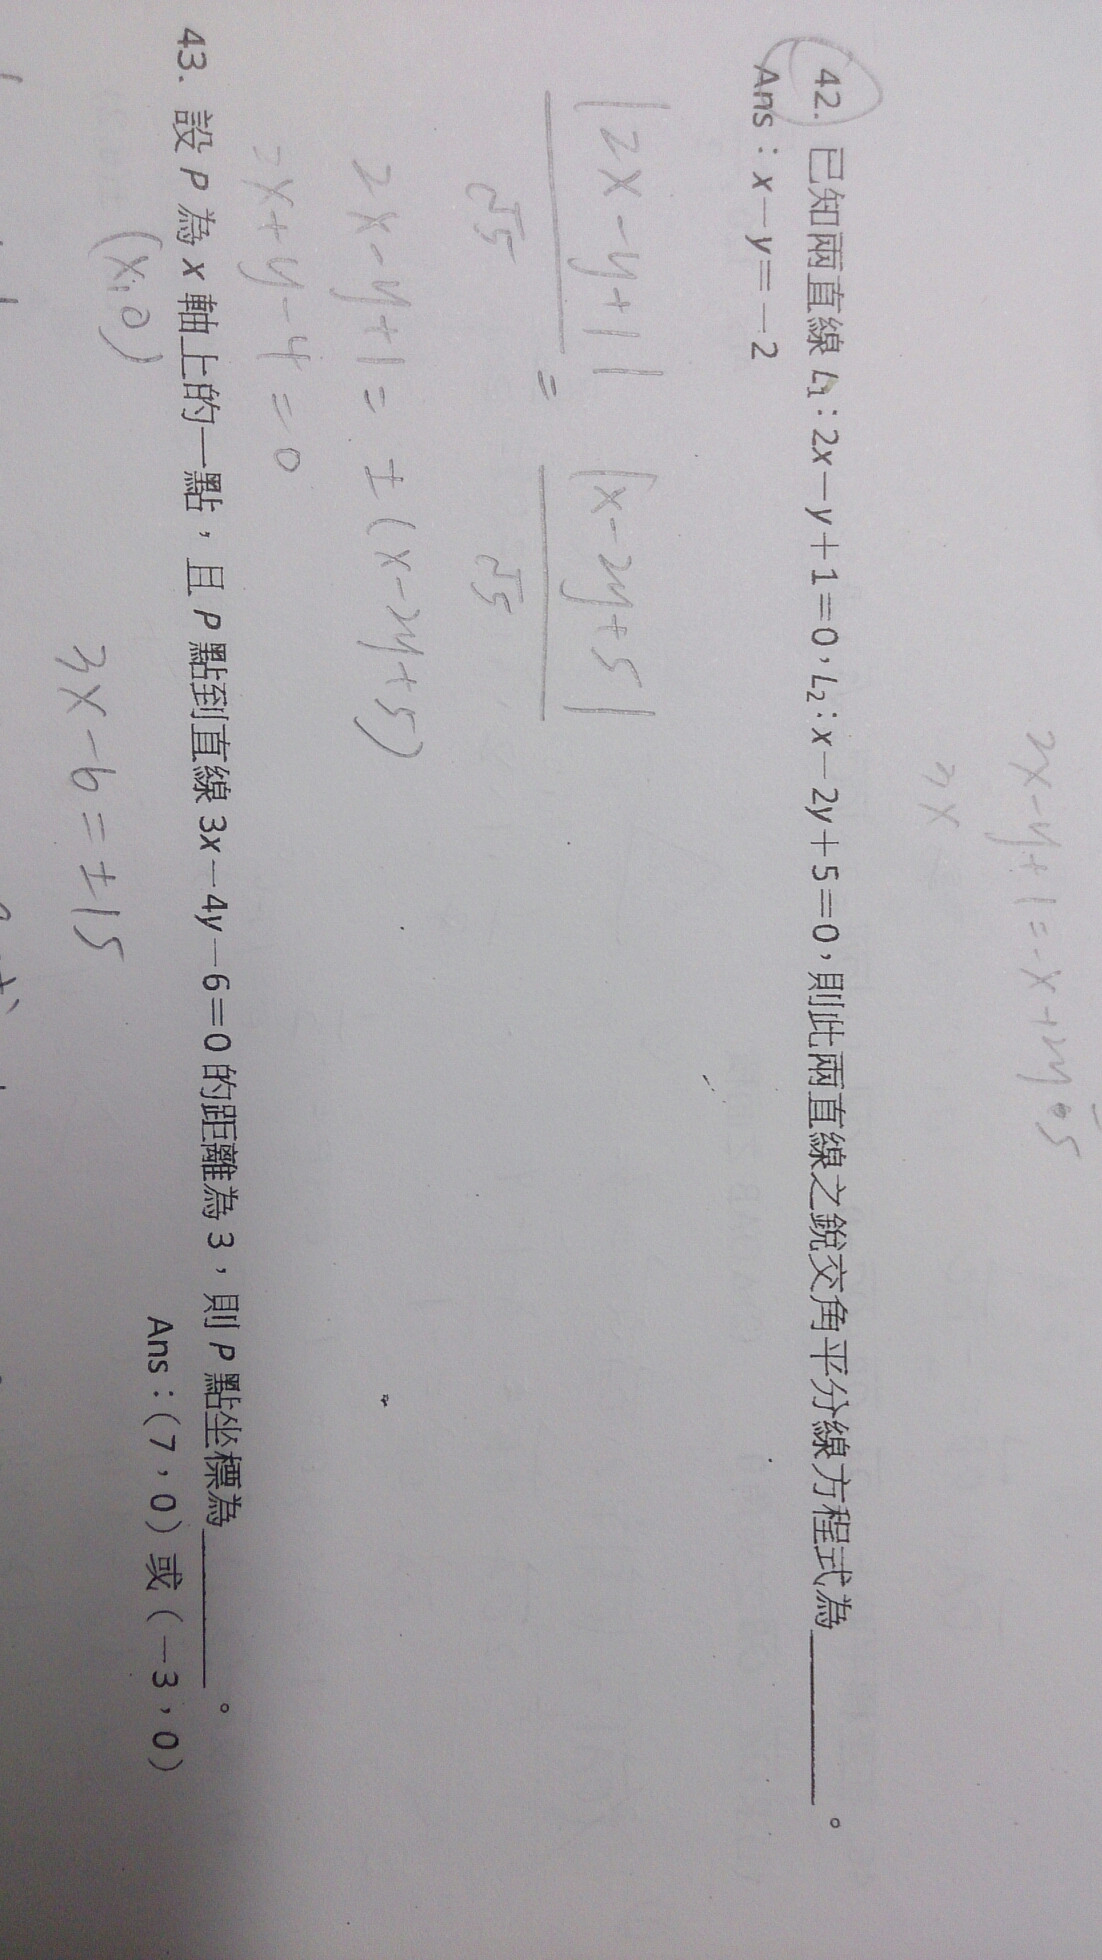 2x-y+1=-x+2y-5
42. 已知兩直線 L₁：2x－y＋1＝0，L₂：x－2y＋5＝0，則此兩直線之銳交角平分線方程式為________。
Ans：x－y＝－2
|2x-y+1| / √5 = |x-2y+5| / √5
2x-y+1=±(x-2y+5)
x+y-4=0
43. 設 P 為 x 軸上的一點，且 P 點到直線 3x－4y－6＝0 的距離為 3，則 P 點坐標為________。
Ans：(7，0) 或 (－3，0)
(x,0)
3x-6=±15